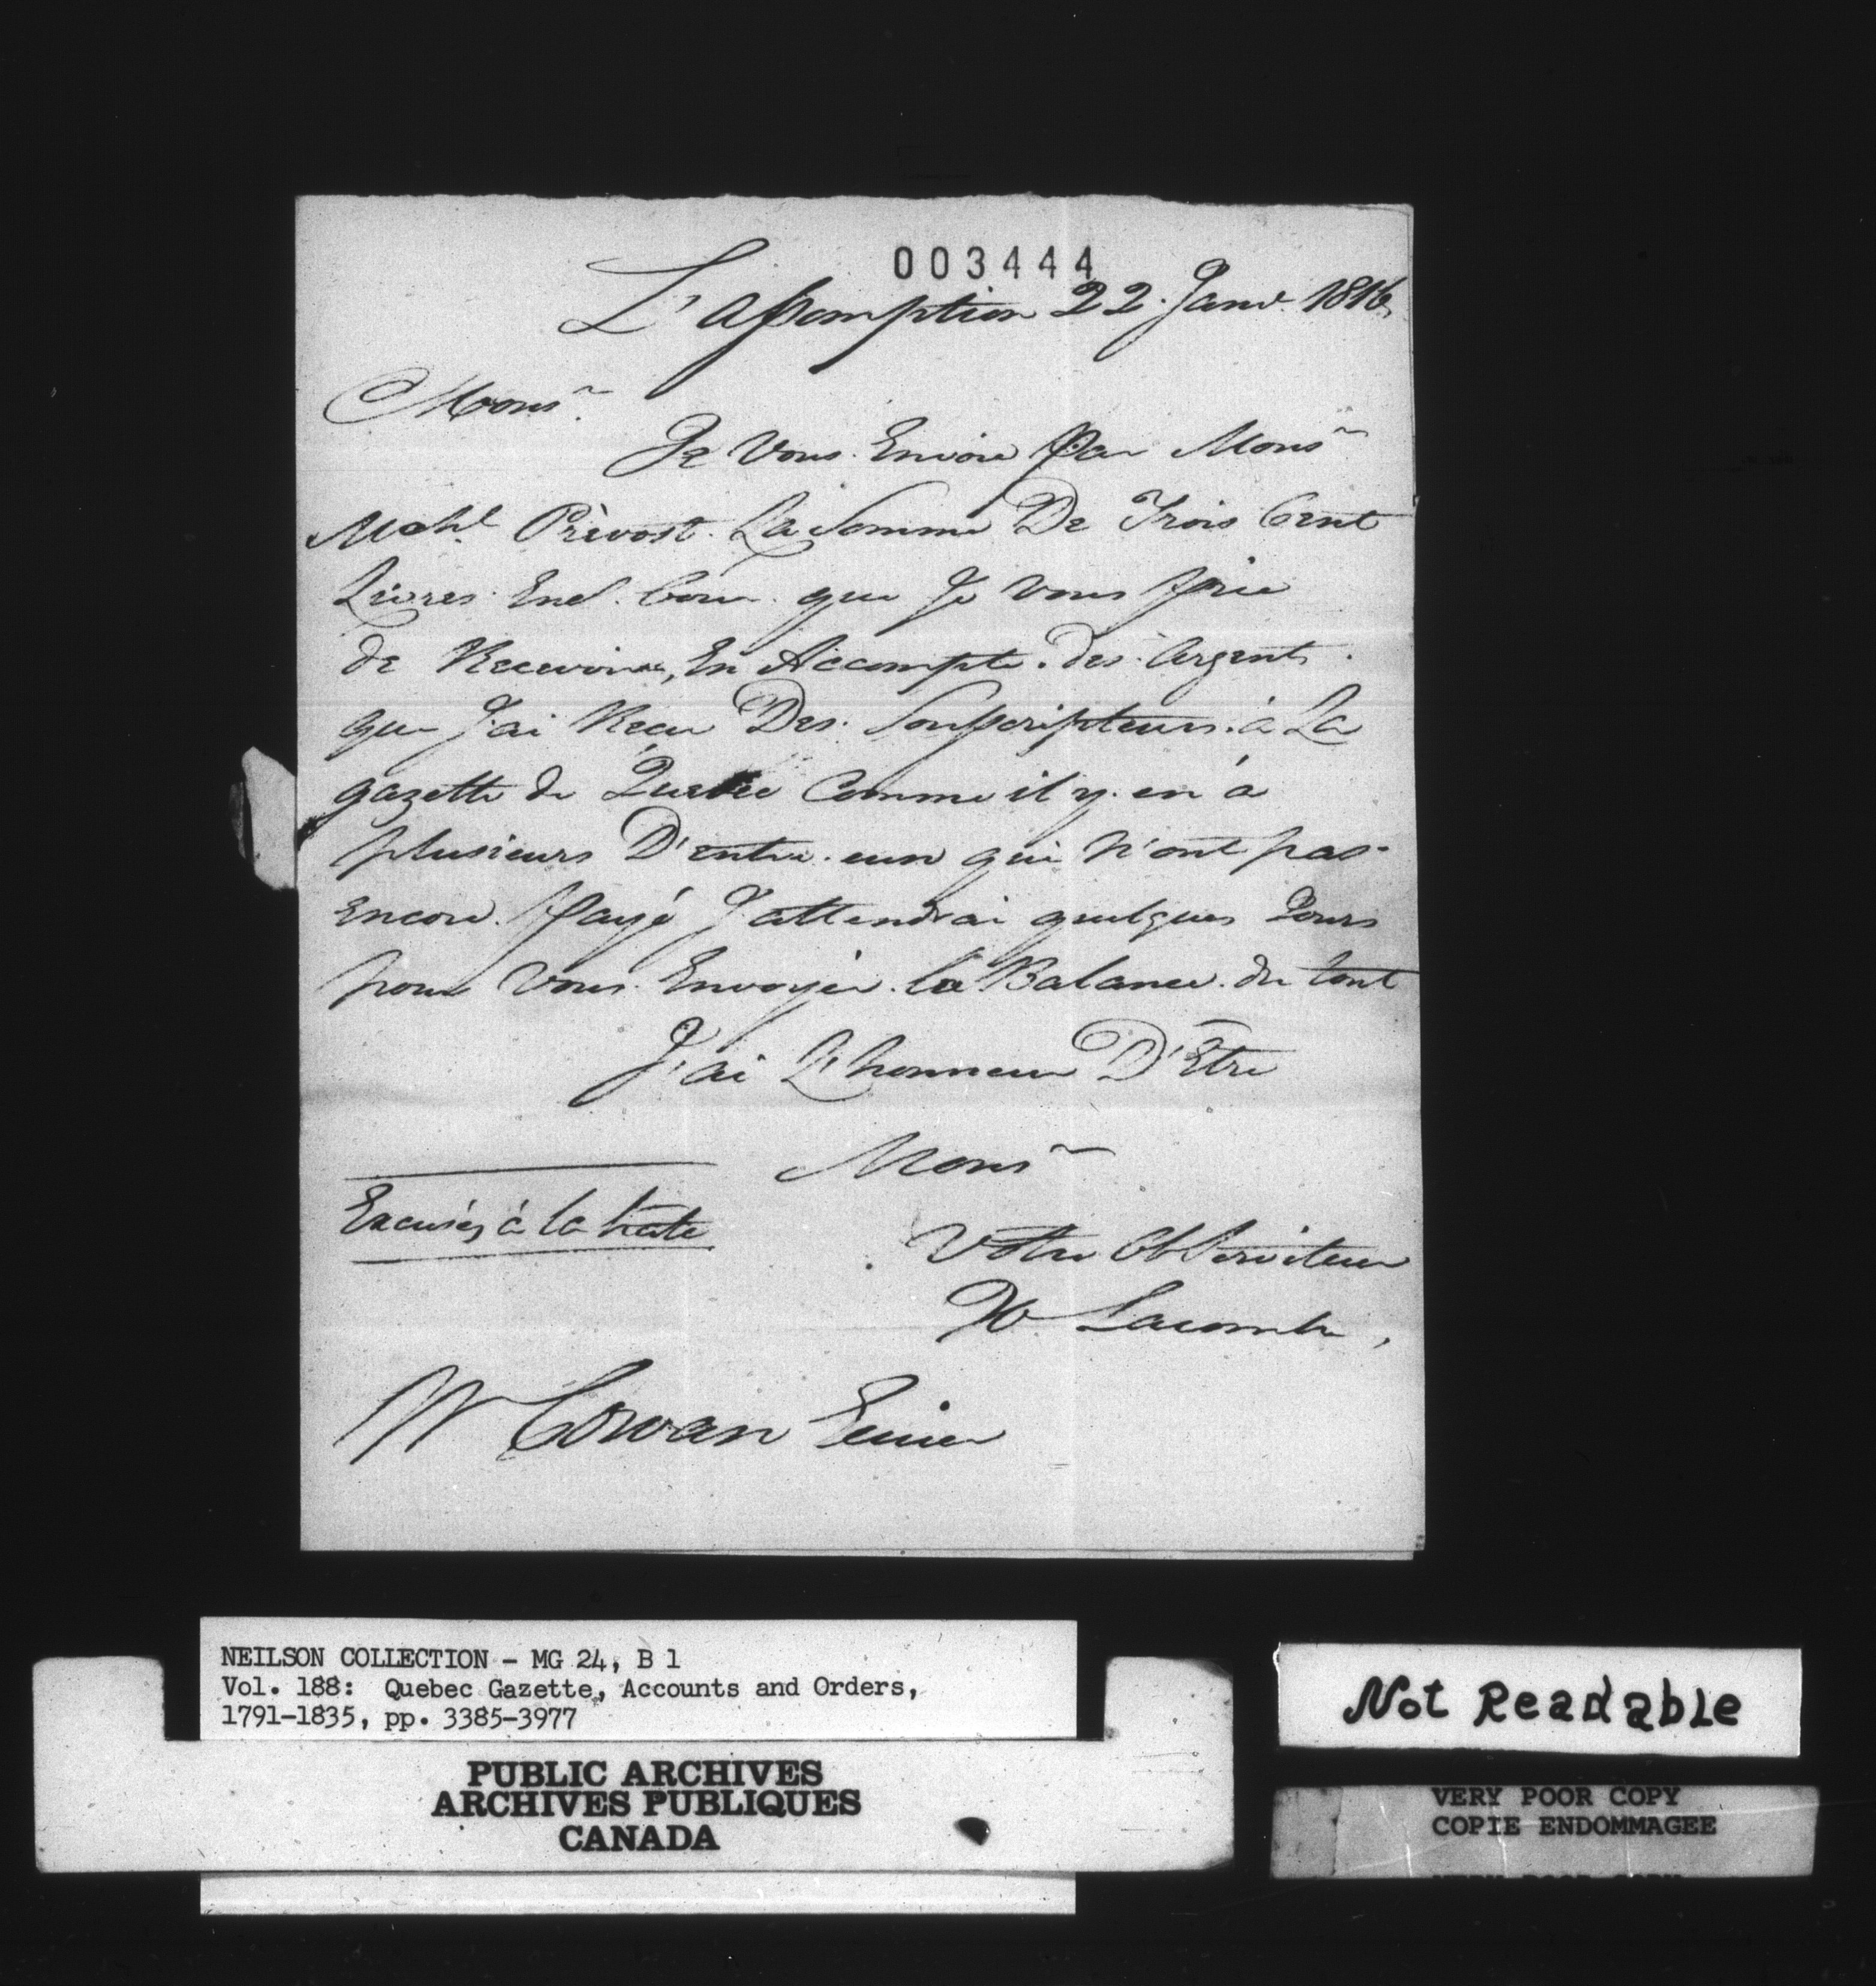 003444
L'assomption 22 Janv. 1816
Monsr.
Je Vous Envoie Par Monsr
Mchl. Prèvost. La Somme De Trois Cent
Livres Encl. Cour. que Je vous prie
de Recevoir, En Accompte. des. Argents.
que J'ai Recu Des. Souscripteurs. à La
gazette de Quebec Comme il y. en à
plusieurs D'entre. eux qui N'ont pas
Encore. Payé J'attendrai quelques Jours
pour Vous. Envoyer. la Balance. du tout
J'ai L'honneur D'Etre
Monsr
Excuséz à la haste
Votre Ob Serviteur
Lacombe,
Wm Cowan Ecuier
NEILSON COLLECTION - MG 24, B 1
Vol. 188: Quebec Gazette, Accounts and Orders,
1791-1835, pp. 3385-3977
PUBLIC ARCHIVES
ARCHIVES PUBLIQUES
CANADA
Not Readable
VERY POOR COPY
COPIE ENDOMMAGEE